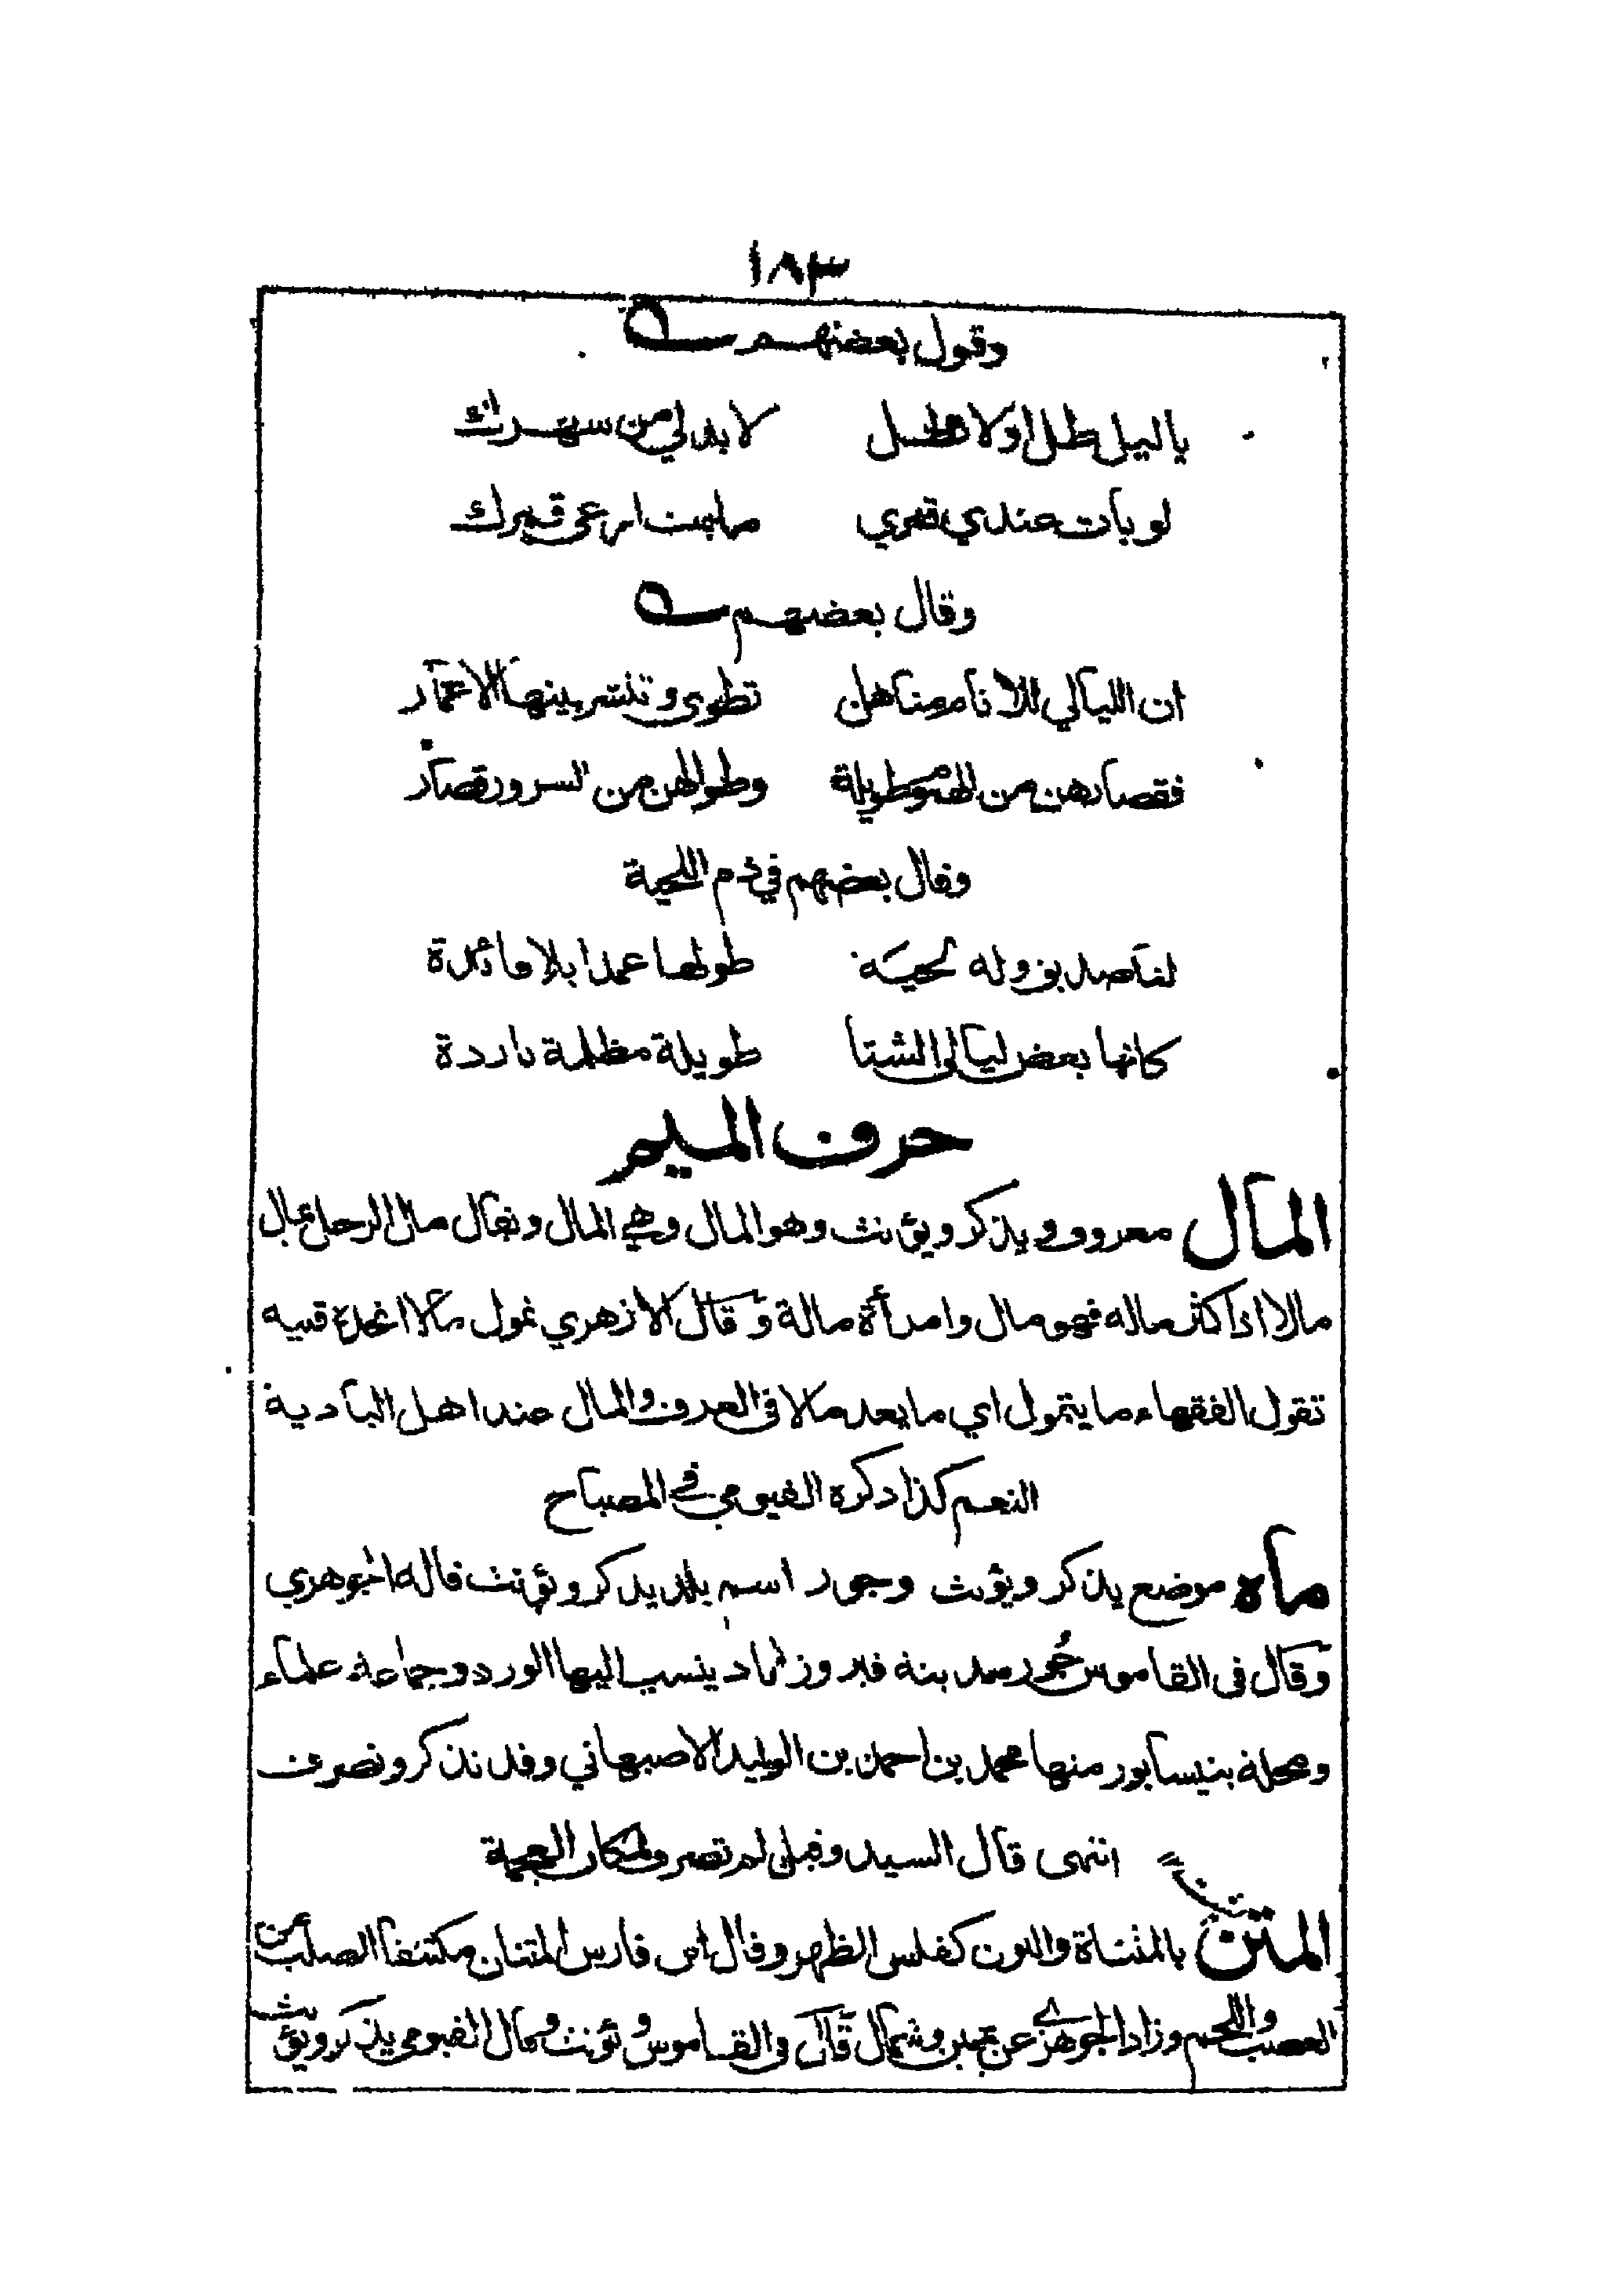 ١٨٣
وقول بعضهم
ياليل طل اولا تطل لا بد لي من سهرك
لو بات عندي قمري ما بت ارعى قمرك
وقال بعضهم
ان الليالي للانام مناهل تطوى وتنشر بينها الاعمار
فقصارهن من الهموم طويلة وطوالهن من السرور قصار
وقال بعضهم في ذم اللحية
لنا صديق وله لحية طولها عمدا بلا فائدة
كانها بعض ليالي الشتا طويلة مظلمة باردة
حرف الميم
المال معروف ويذكر ويؤنث وهو المال وهي المال ويقال مال الرجل يمال
مالا اذا كثر ماله فهو مال وامرأة مالة وقال الازهري تمول مالا اتخذه قنية
تقول الفقهاء ما يتمول اي ما يعد مالا في العرف والمال عند اهل البادية
النعم كذا ذكره الفيومي في المصباح
ماه موضع يذكر ويؤنث وجور اسم بلد يذكر ويؤنث قاله الجوهري
وقال في القاموس جُور مدينة فيروزاباد ينسب اليها الورد وجماعة علماء
ومحلة بنيسابور منها محمد بن احمد بن الوليد الاصبهاني وقد تذكر وتصرف
انتهى قال السيد وقيل لم تصرف لمكان العجمة
المتن بالمثناة والنون كفلس الظهر وقال ابن فارس المتنان مكتنفا الصلب من
العصب واللحم وزاد الجوهري عن يمين وشمال قال في القاموس ويؤنث وقال الفيومي يذكر ويؤنث